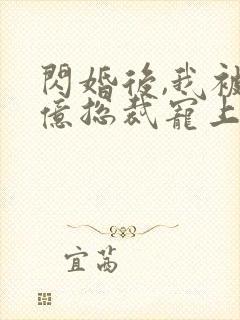 閃婚後,我被
億總裁寵上
宜茜